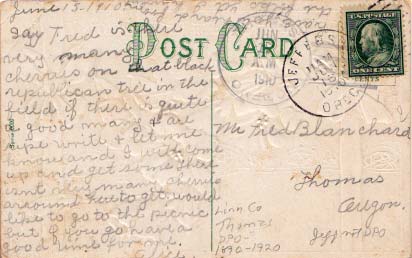 June 15-1910
POST CARD
Say Fred is there
very many
cherries on that black
republican tree in the
field if there is quite
a good many & are
ripe write & let me
know and I will come
up and get some there
isnt very many cherries
around here to get. would
like to go to the picnic
but if you go have a
good time for me.
JUN
A.M.
1910
ORE
JEFFERSON
ORE.
U.S. POSTAGE
ONE CENT
Mr Fred Blanchard
Thomas
Oregon.
Linn Co
Thomas
DPO-1
1898-1920
Jeff not DPO